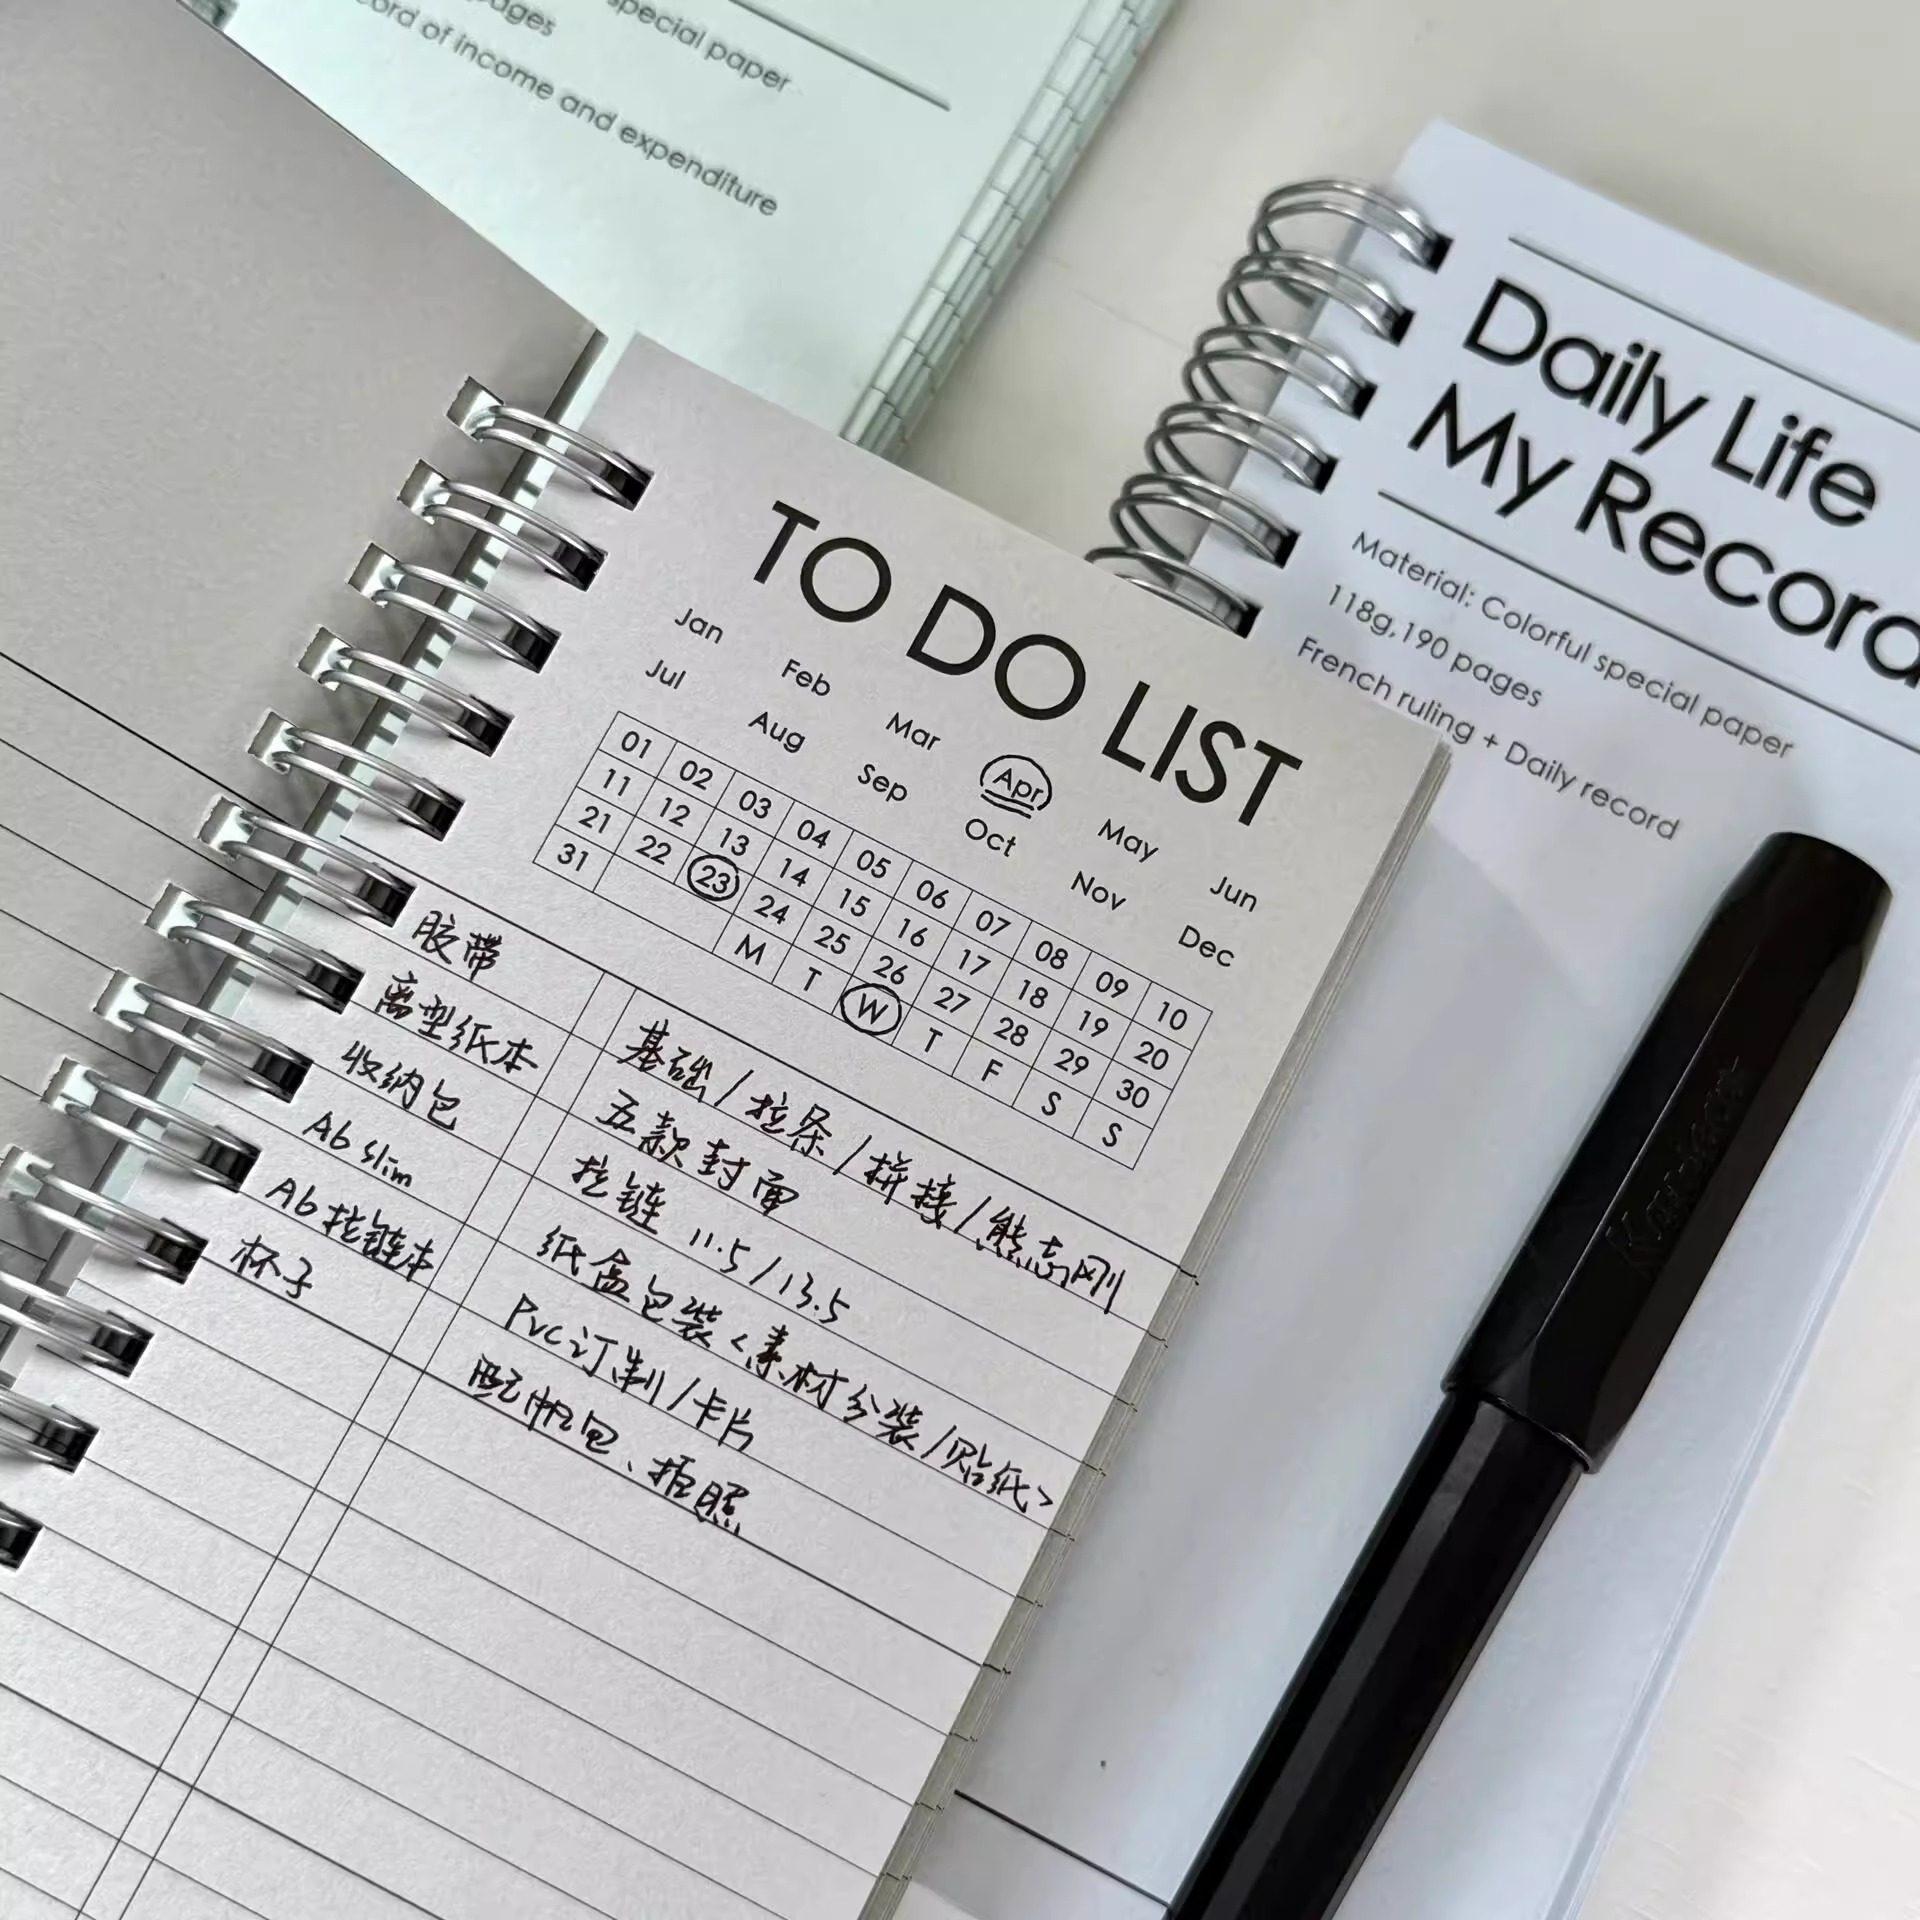 special paper
pages
cord of income and expenditure
Daily Life
My Record
Material: Colorful special paper
118g,190 pages
French ruling + Daily record
Kaweco
TO DO LIST
Jan Feb Mar Apr May Jun
Jul Aug Sep Oct Nov Dec
01 02 03 04 05 06 07 08 09 10
11 12 13 14 15 16 17 18 19 20
21 22 23 24 25 26 27 28 29 30
31 M T W T F S S
胶带 基础/拉条/拼接/熊志刚
离型纸本 五款封面
收纳包 拉链 11.5/13.5
Ab slim 纸盒包装<素材分装/贴纸>
Ab拉链本 Pvc订制/卡片
杯子 包、拒照